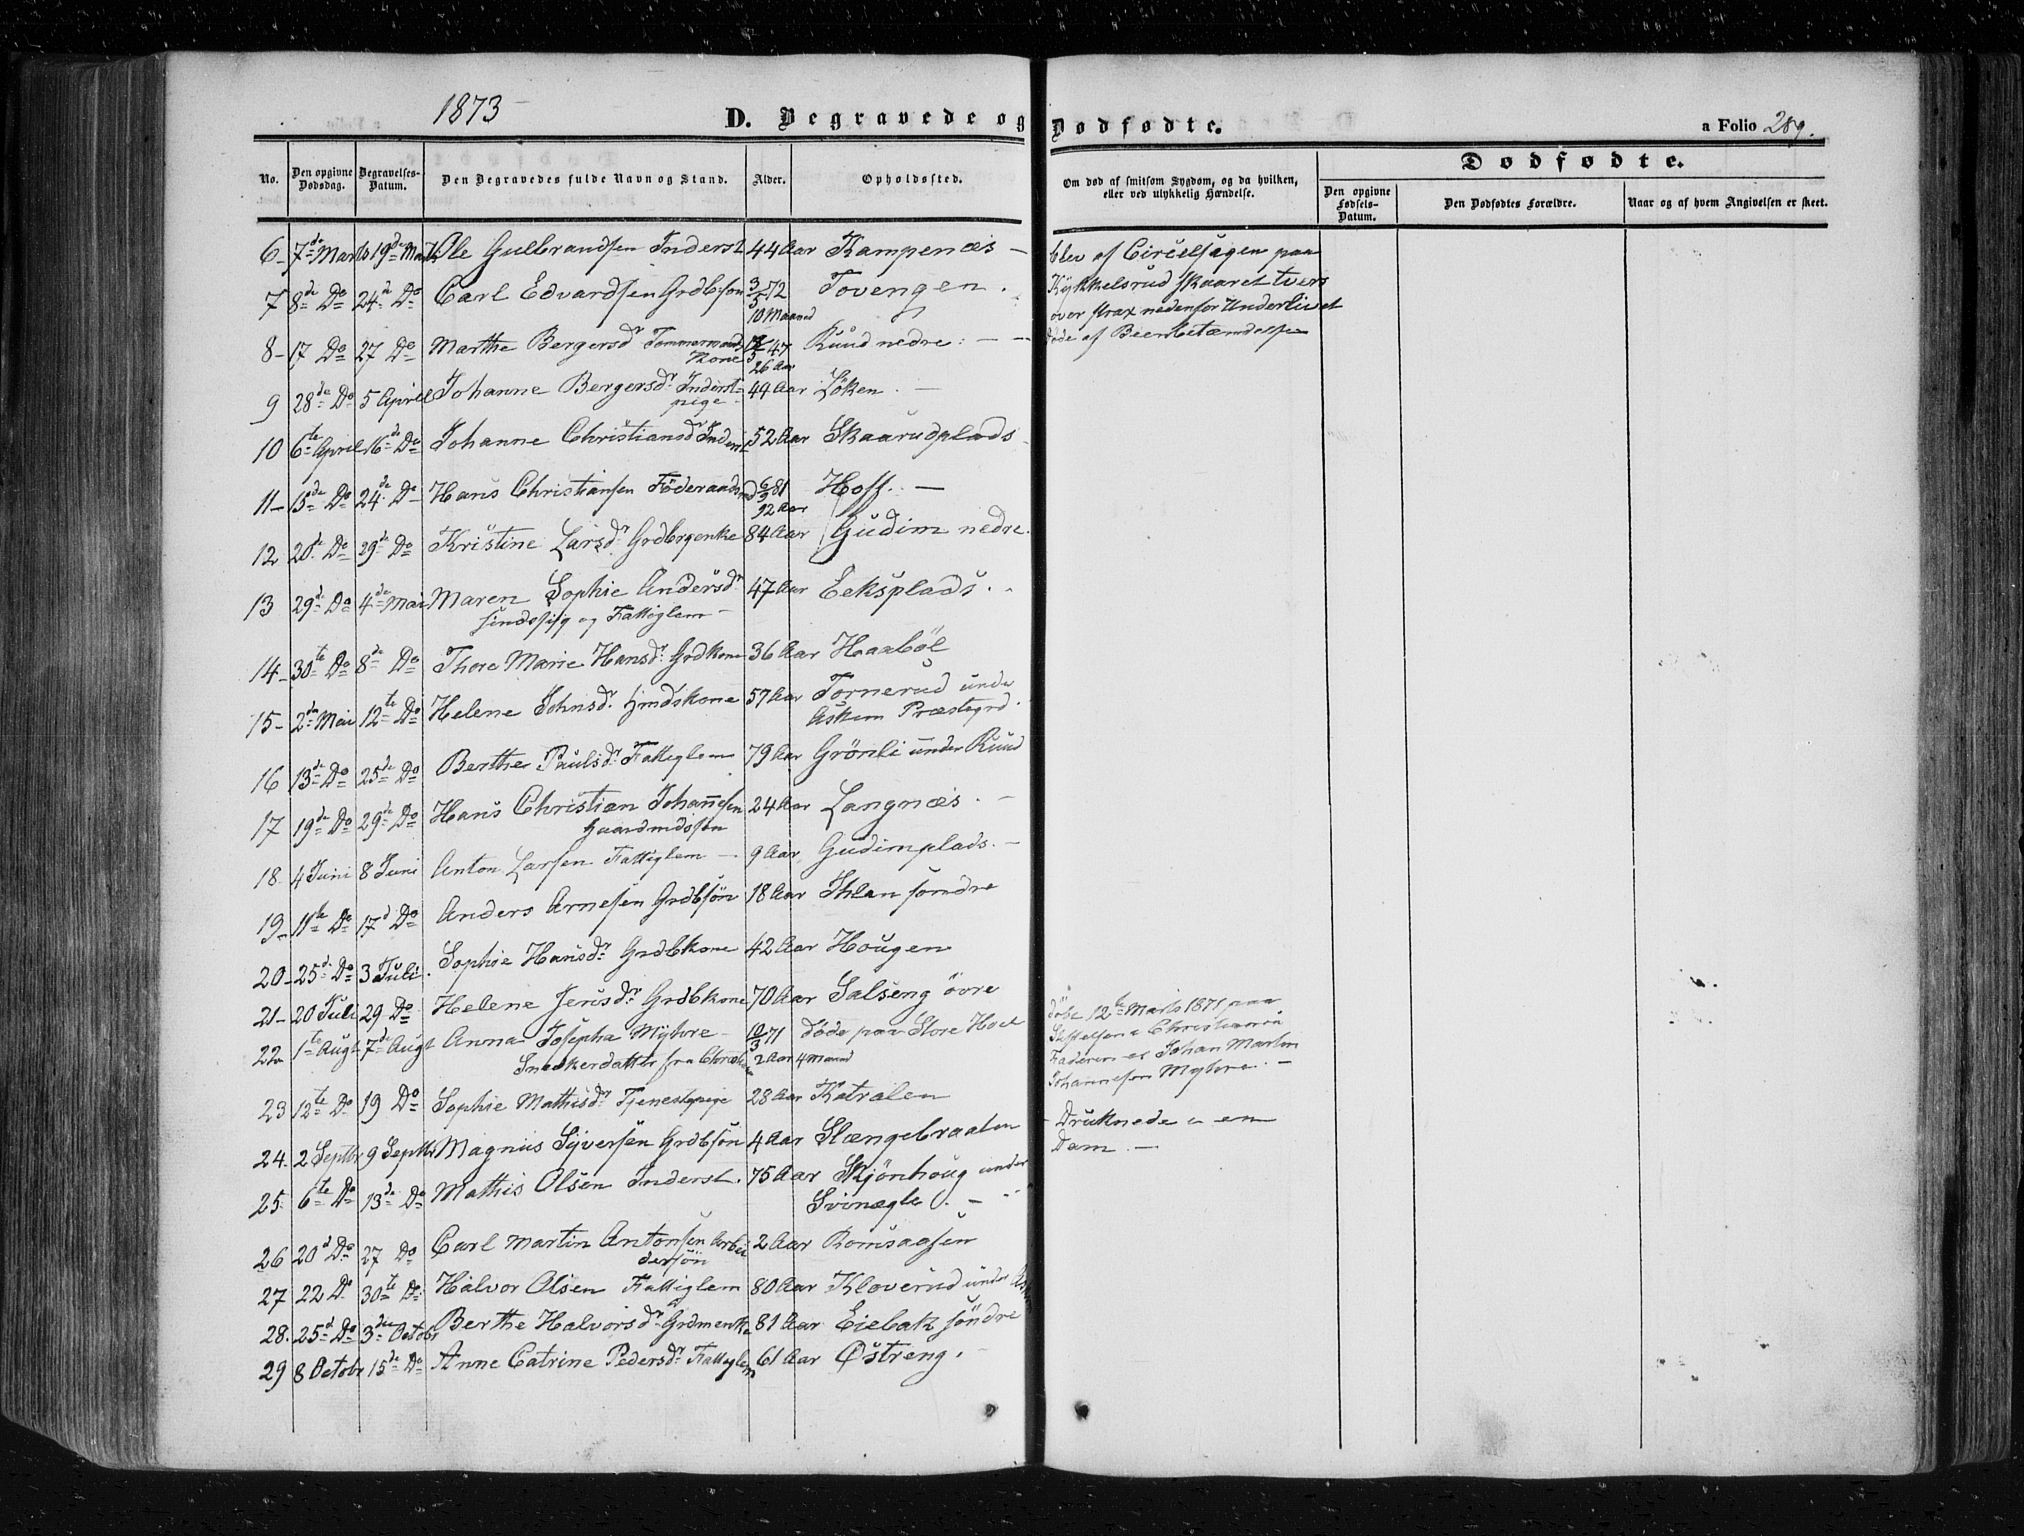 1873
D. Begravede og Dødfødte.
a Folio 289.
No. Den opgivne Dødsdag. Begravelses-Datum. Den Begravedes fulde Navn og Stand. Alder. Opholdssted. Om død af smitsom Sygdom, og da hvilken, eller ved ulykkelig Hændelse.
Dødfødte.
Den opgivne Fødsels-Datum. Den Dødfødtes Forældre. Naar og af hvem Angivelsen er skeet.
6 7de Marts 19de Marts Ole Gulbrandsen Inderst 44 Aar Kampenæs blev af Circelsagen paa
7 8de Do 24de Do Carl Edvardsen Grdbsøn 3/5 72 Tovengen. Kykkelsrud skaaret tvers
10 Maaned over strax nedenfor Underlivet
8 17 Do 27 Do Marthe Bergersdr Tømmermands 47 Ruud nedre døde af Beenbetændelse
Kone 26 Aar
9 28de Do 5 April Johanne Bergersdr Inderst- 49 Aar Löken
pige
10 6te April 16de Do Johanne Christiansdr Inderst 52 Aar Skaarudplads
11 15de Do 24de Do Hans Christiansen Föderaadsmd 6/9 81 Hoff.
92 Aar
12 20de Do 29de Do Kristine Larsdr Grdbrgenke 84 Aar Gudim nedre.
13 29de Do 4de Mai Maren Sophie Andersdr 47 Aar Eeksplads.
sindssyg og Fattiglem
14 30te Do 8de Do Thore Marie Hansdr Grdkone 36 Aar Haaböl
15 2den Mai 12te Do Helene Johnsdr Hmdskone 57 Aar Tornerud under
Askim Præstegrd.
16 13de Do 25de Do Berthe Paulsdr Fattiglem 79 Aar Grönli under Ruud
17 19de Do 29de Do Hans Christian Johannesen 24 Aar Langnæs.
Gaardmdssøn
18 4 Juni 8 Juni Anton Larsen Fattiglem 9 Aar Gudimplads.
19 11te Do 17d Do Anders Arnesen Grdbsön 18 Aar Ihlen söndre
20 25de Do 3 Juli. Sophie Hansdr Grdbkone 42 Aar Hougen
21 20 Juli 29 Do Helene Jensdr Grdbkone 70 Aar Salseng övre
22 1te Augt 7de Augt Anna Josepha Myhre 12/3 71 döde paa Store Hoel döbt 12te Marts 1871 paa
Snedkerdatter fra 2 Aar 4 Maaned Stiftelsen i Christiania
Faderen er Johan Martin
Johannesen Myhre.
23 12te Do 19 Do Sophie Mathisdr Tjenestepige 28 Aar Katralen Druknede i en
24. 2 Septbr 9 Septbr Magnus Syversen Grdbsön 4 Aar Slængebraaten Dam.
25. 6te Do 13de Do Mathis Olsen Inderst. 75 Aar Skjönhoug under
Svinægle.
26 20d Do 27 Do Carl Martin Antonsen Arbei 2 Aar Romsaasen
dersön
27 22 Do 30te Do Halvor Olsen Fattiglem 80 Aar Kloverud under Askim
28. 25d Do 3die Octobr Berthe Halvorsdr Grdmenke 81 Aar Eiebak söndre
29 8 Octobr 15de Do Anne Catrine Pedersdr Fattiglem 61 Aar Østreng.